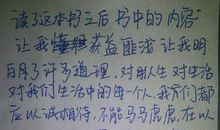 读了这本书之后 书中的内容
让我懂得获益匪浅 让我明
白了许多道理,对别人生对生活
对我们生活中的每一个人,我们都
应以诚相待,不能马马虎虎,在以